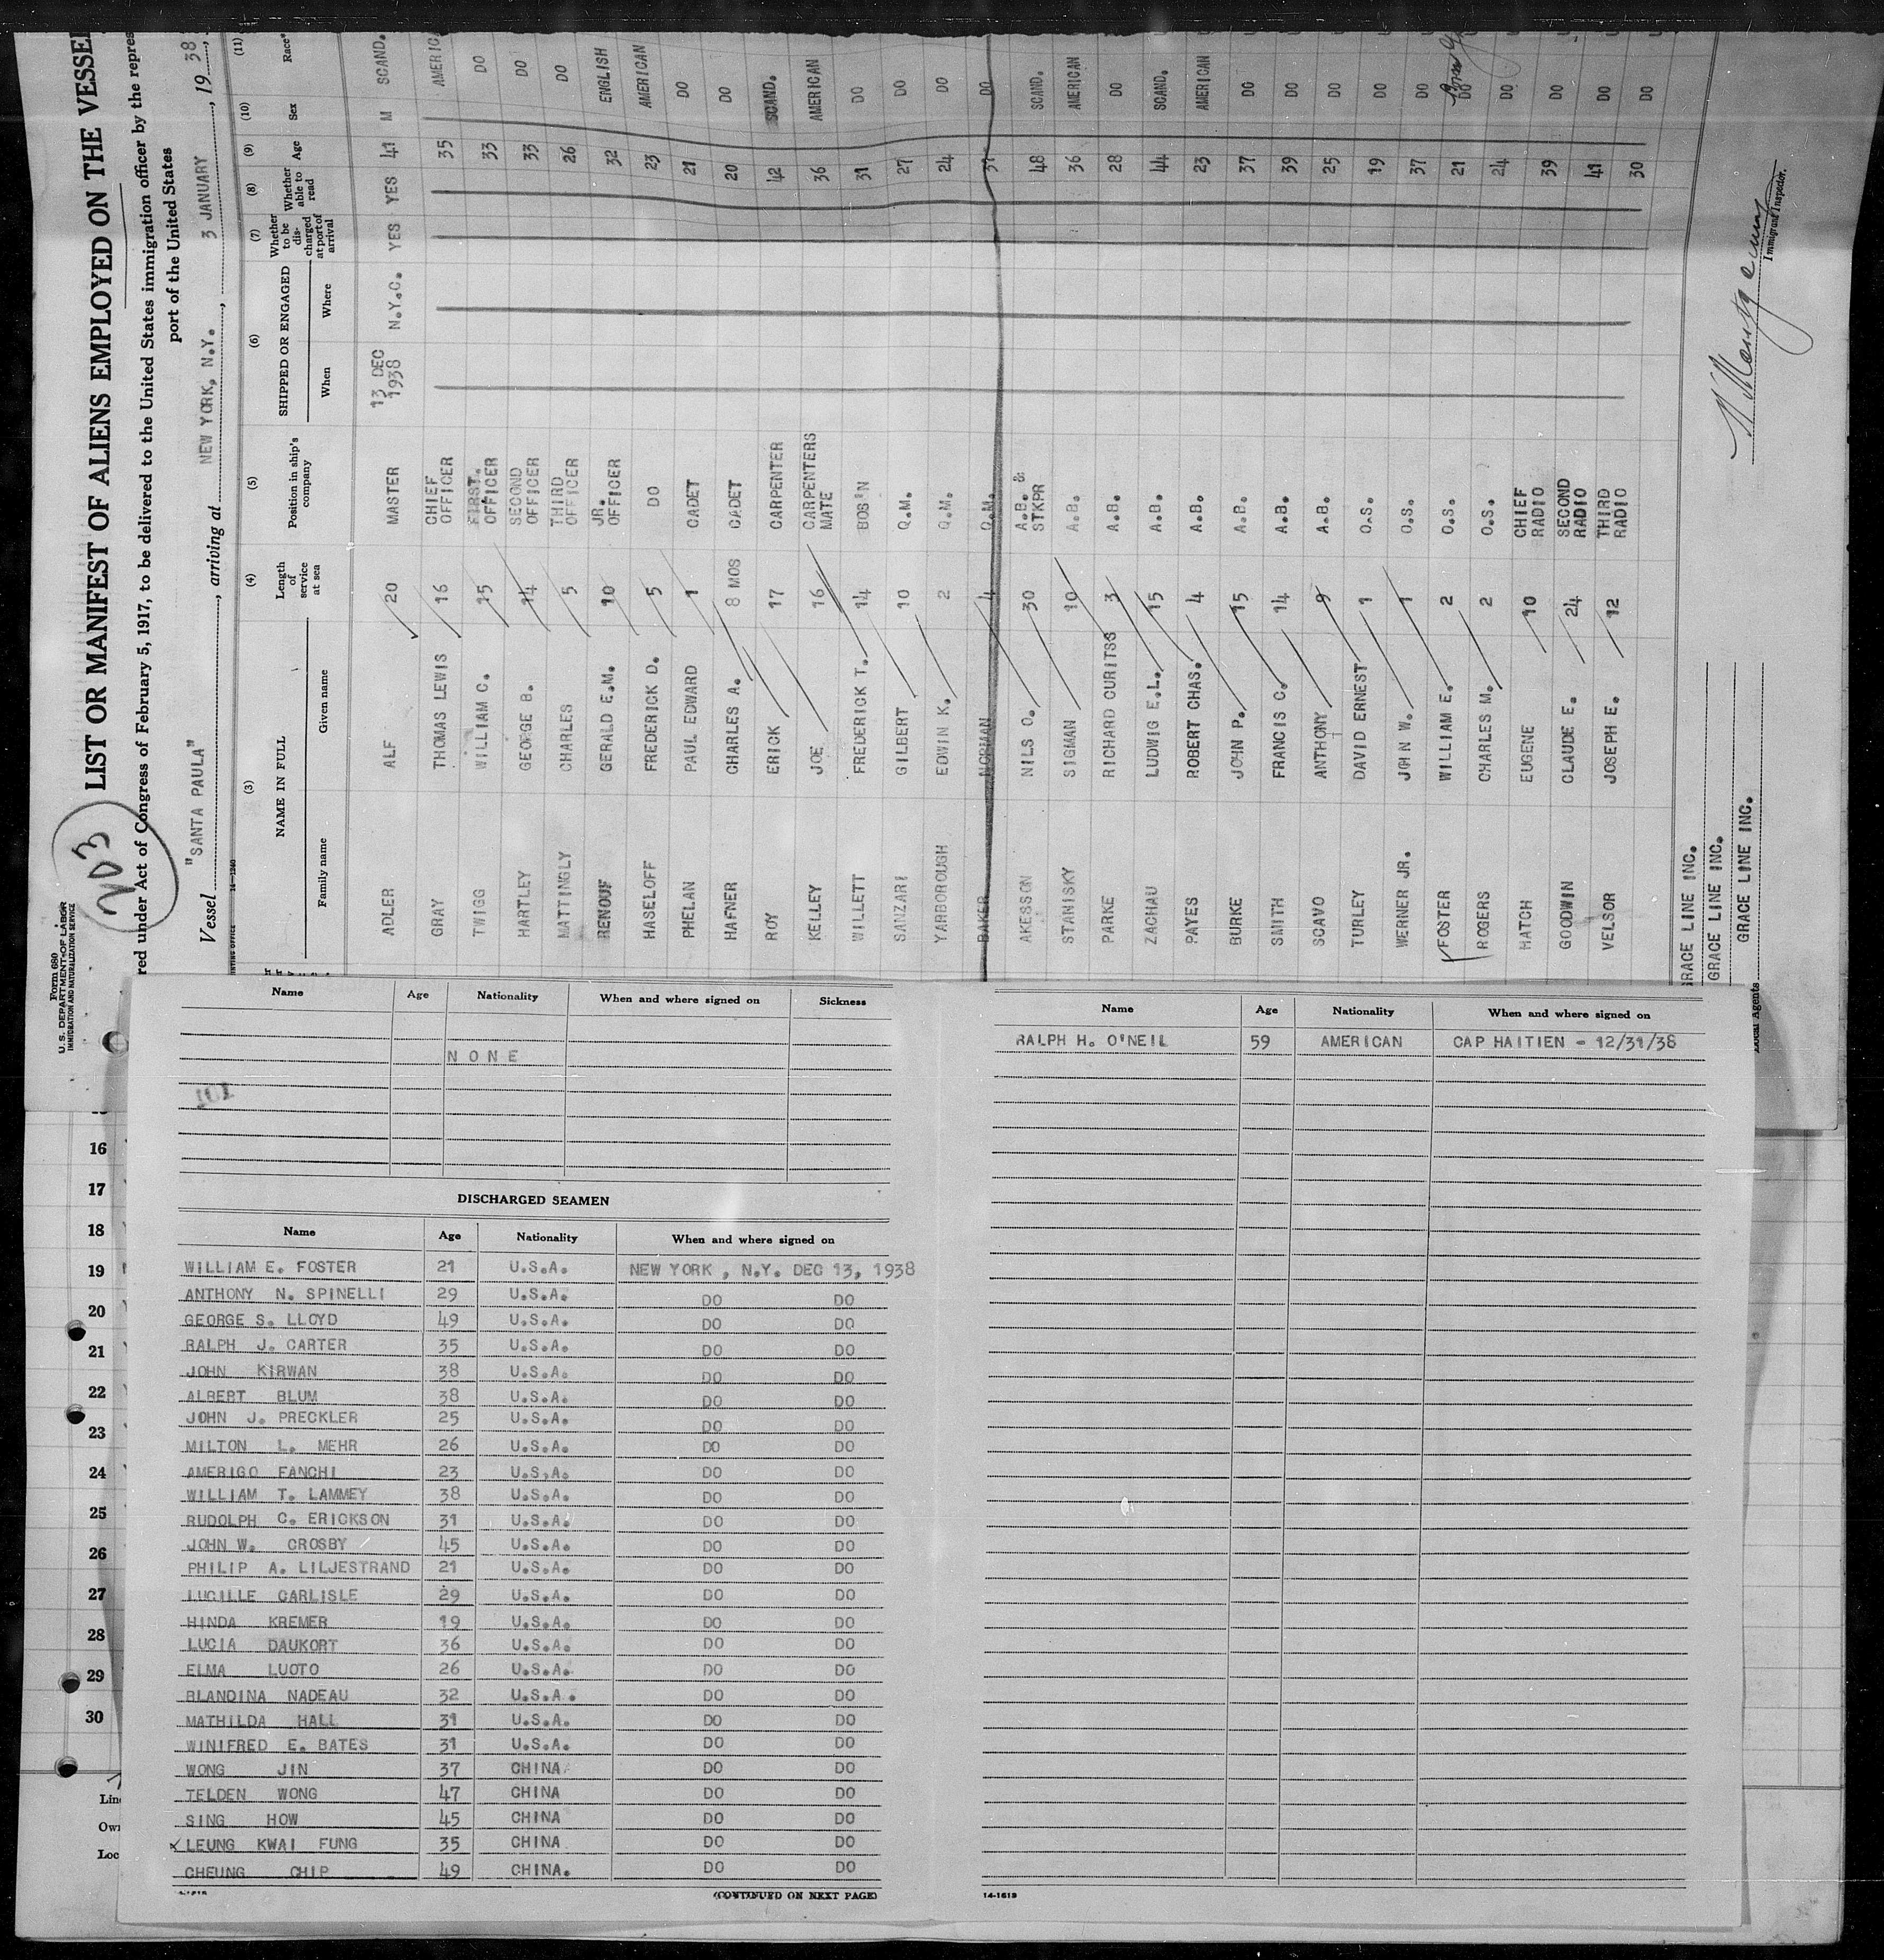 Form 680
U.S. DEPARTMENT OF LABOR
IMMIGRATION AND NATURALIZATION SERVICE
203
LIST OR MANIFEST OF ALIENS EMPLOYED ON THE VESSEL
red under Act of Congress of February 5, 1917, to be delivered to the United States immigration officer by the repres
port of the United States
Vessel "SANTA PAULA", arriving at NEW YORK, N.Y., 3 JANUARY, 19 38
(3) (4) (5) (6) (7) (8) (9) (10) (11)
NAME IN FULL Length of service at sea Position in ship's company SHIPPED OR ENGAGED Whether to be discharged at port of arrival Whether able to read Age Sex Race*
Family name Given name When Where
ADLER ALF 20 MASTER 13 DEC 1938 N.Y.C. YES YES 41 M SCAND.
GRAY THOMAS LEWIS 16 CHIEF OFFICER 35 AMERIC
TWIGG WILLIAM C. 15 FIRST. OFFICER 33 DO
HARTLEY GEORGE B. 14 SECOND OFFICER 33 DO
MATTINGLY CHARLES 5 THIRD OFFICER 26 DO
RENOUF GERALD E.M. 10 JR. OFFICER 32 ENGLISH
HASELOFF FREDERICK D. 5 DO 23 AMERICAN
PHELAN PAUL EDWARD 1 CADET 21 DO
HAFNER CHARLES A. 8 MOS CADET 20 DO
ROY ERICK 17 CARPENTER 42 SCAND.
KELLEY JOE 16 CARPENTERS MATE 36 AMERICAN
WILLETT FREDERICK T. 14 BOS'N 31 DO
SANZARI GILBERT 10 Q.M. 27 DO
YARBOROUGH EDWIN K. 2 Q.M. 24 DO
BAKER NORMAN 4 Q.M. 31 DO
AKESSON NILS O. 30 A.B. & STKPR 48 SCAND.
STANISKY SIGMAN 10 A.B. 36 AMERICAN
PARKE RICHARD CURITSS 3 A.B. 28 DO
ZACHAU LUDWIG E.L. 15 A.B. 44 SCAND.
PAYES ROBERT CHAS. 4 A.B. 23 AMERICAN
BURKE JOHN P. 15 A.B. 37 DO
SMITH FRANCIS C. 14 A.B. 39 DO
SCAVO ANTHONY 9 A.B. 25 DO
TURLEY DAVID ERNEST 1 O.S. 19 DO
WERNER JR. JOHN W. 1 O.S. 37 DO
FOSTER WILLIAM E. 2 O.S. 21 DO
ROGERS CHARLES M. 2 O.S. 24 DO
HATCH EUGENE 10 CHIEF RADIO 39 DO
GOODWIN CLAUDE E. 24 SECOND RADIO 41 DO
VELSOR JOSEPH E. 12 THIRD RADIO 30 DO
GRACE LINE INC.
GRACE LINE INC.
GRACE LINE INC.
Local Agents
Immigrant Inspector.
Name Age Nationality When and where signed on Sickness
NONE
DISCHARGED SEAMEN
Name Age Nationality When and where signed on
WILLIAM E. FOSTER 21 U.S.A. NEW YORK, N.Y. DEC 13, 1938
ANTHONY N. SPINELLI 29 U.S.A. DO DO
GEORGE S. LLOYD 49 U.S.A. DO DO
RALPH J. CARTER 35 U.S.A. DO DO
JOHN KIRWAN 38 U.S.A. DO DO
ALBERT BLUM 38 U.S.A. DO DO
JOHN J. PRECKLER 25 U.S.A. DO DO
MILTON L. MEHR 26 U.S.A. DO DO
AMERIGO FANCHI 23 U.S.A. DO DO
WILLIAM T. LAMMEY 38 U.S.A. DO DO
RUDOLPH C. ERICKSON 31 U.S.A. DO DO
JOHN W. CROSBY 45 U.S.A. DO DO
PHILIP A. LILJESTRAND 21 U.S.A. DO DO
LUCILLE CARLISLE 29 U.S.A. DO DO
HINDA KREMER 19 U.S.A. DO DO
LUCIA DAUKORT 36 U.S.A. DO DO
ELMA LUOTO 26 U.S.A. DO DO
BLANDINA NADEAU 32 U.S.A. DO DO
MATHILDA HALL 31 U.S.A. DO DO
WINIFRED E. BATES 31 U.S.A. DO DO
WONG JIN 37 CHINA DO DO
TELDEN WONG 47 CHINA DO DO
SING HOW 45 CHINA DO DO
LEUNG KWAI FUNG 35 CHINA DO DO
CHEUNG CHIP 49 CHINA. DO DO
(CONTINUED ON NEXT PAGE)
Name Age Nationality When and where signed on
RALPH H. O'NEIL 59 AMERICAN CAP HAITIEN - 12/31/38
14-1613
16
17
18
19
20
21
22
23
24
25
26
27
28
29
30
Line
Own
Loc